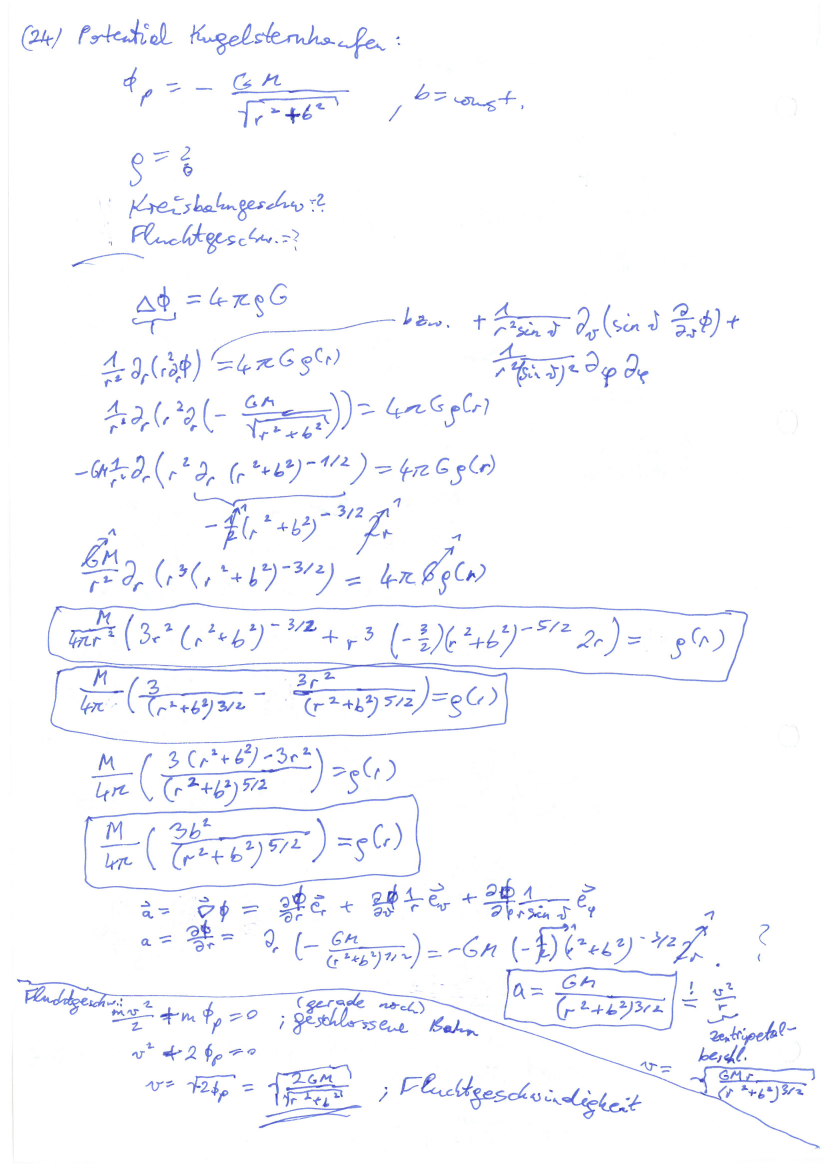 (24) Potential Kugelsternhaufen:
ϕ_p = - GM / √(r²+b²) , b=const.
ρ = ?
Kreisbahngeschw.=?
Fluchtgeschw.=?
Δϕ = 4πρG
bzw. + 1/(r² sin ϑ) ∂_ϑ (sin ϑ ∂/∂ϑ ϕ) +
1/(r²(sin ϑ)²) ∂_φ ∂_φ
1/r² ∂_r (r² ∂_r ϕ) = 4πGρ(r)
1/r² ∂_r (r² ∂_r (- GM/√(r²+b²))) = 4πGρ(r)
-GM 1/r² ∂_r (r² ∂_r (r²+b²)^(-1/2)) = 4πGρ(r)
-1/2 (r²+b²)^(-3/2) 2r
GM/r² ∂_r (r³ (r²+b²)^(-3/2)) = 4πGρ(r)
M/(4πr²) (3r² (r²+b²)^(-3/2) + r³ (-3/2)(r²+b²)^(-5/2) 2r) = ρ(r)
M/4π (3/(r²+b²)^(3/2) - 3r²/(r²+b²)^(5/2)) = ρ(r)
M/4π ((3(r²+b²)-3r²)/(r²+b²)^(5/2)) = ρ(r)
M/4π (3b²/(r²+b²)^(5/2)) = ρ(r)
a⃗ = ∇⃗ϕ = ∂ϕ/∂r e⃗_r + ∂ϕ/∂ϑ 1/r e⃗_ϑ + ∂ϕ/∂φ 1/(r sin ϑ) e⃗_φ
a = ∂ϕ/∂r = ∂_r (- GM/(r²+b²)^(1/2)) = -GM (-1/2)(r²+b²)^(-3/2) 2r . ?
a = GM/(r²+b²)^(3/2) =! v²/r
Zentripetal-
beschl.
v = √(GMr/(r²+b²)^(3/2))
Fluchtgeschw.:
mv²/2 + mϕ_p = 0 ; (gerade noch)
geschlossene Bahn
v² + 2ϕ_p = 0
v = √(-2ϕ_p) = √(2GM/√(r²+b²)) ; Fluchtgeschwindigkeit